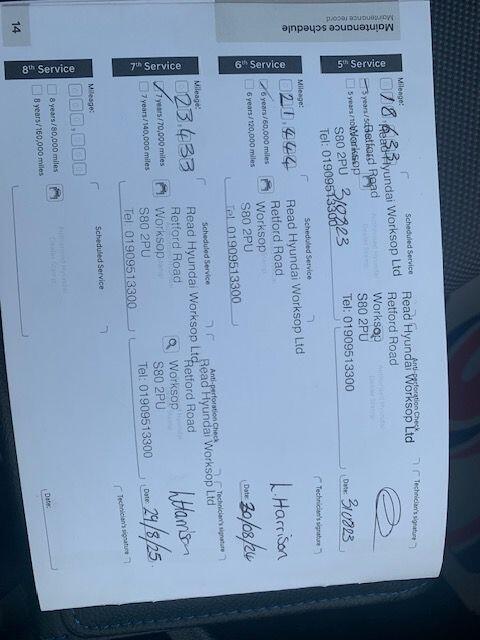 Maintenance schedule
Maintenance record
14
5th Service
Mileage:
18,633
5 years/50
5 years/100
Scheduled Service
Read Hyundai Worksop Ltd
Retford Road
Worksop
S80 2PU
Tel: 01909513300
Anti-perforation Check
Read Hyundai Worksop Ltd
Retford Road
Worksop
S80 2PU
Tel: 01909513300
Technician's signature
Date:
6th Service
Mileage:
21,444
6 years/60,000 miles
6 years/120,000 miles
Scheduled Service
Read Hyundai Worksop Ltd
Retford Road
Worksop
S80 2PU
Tel: 01909513300
Technician's signature
L. Harrison
Date: 30/08/24
7th Service
Mileage:
23,433
7 years/70,000 miles
7 years/140,000 miles
Scheduled Service
Read Hyundai Worksop Ltd
Retford Road
Worksop
S80 2PU
Tel: 01909513300
Anti-perforation Check
Read Hyundai Worksop Ltd
Retford Road
Worksop
S80 2PU
Tel: 01909513300
Technician's signature
L Harrison
Date: 29/8/25
8th Service
Mileage:
8 years/80,000 miles
8 years/160,000 miles
Scheduled Service
Date: